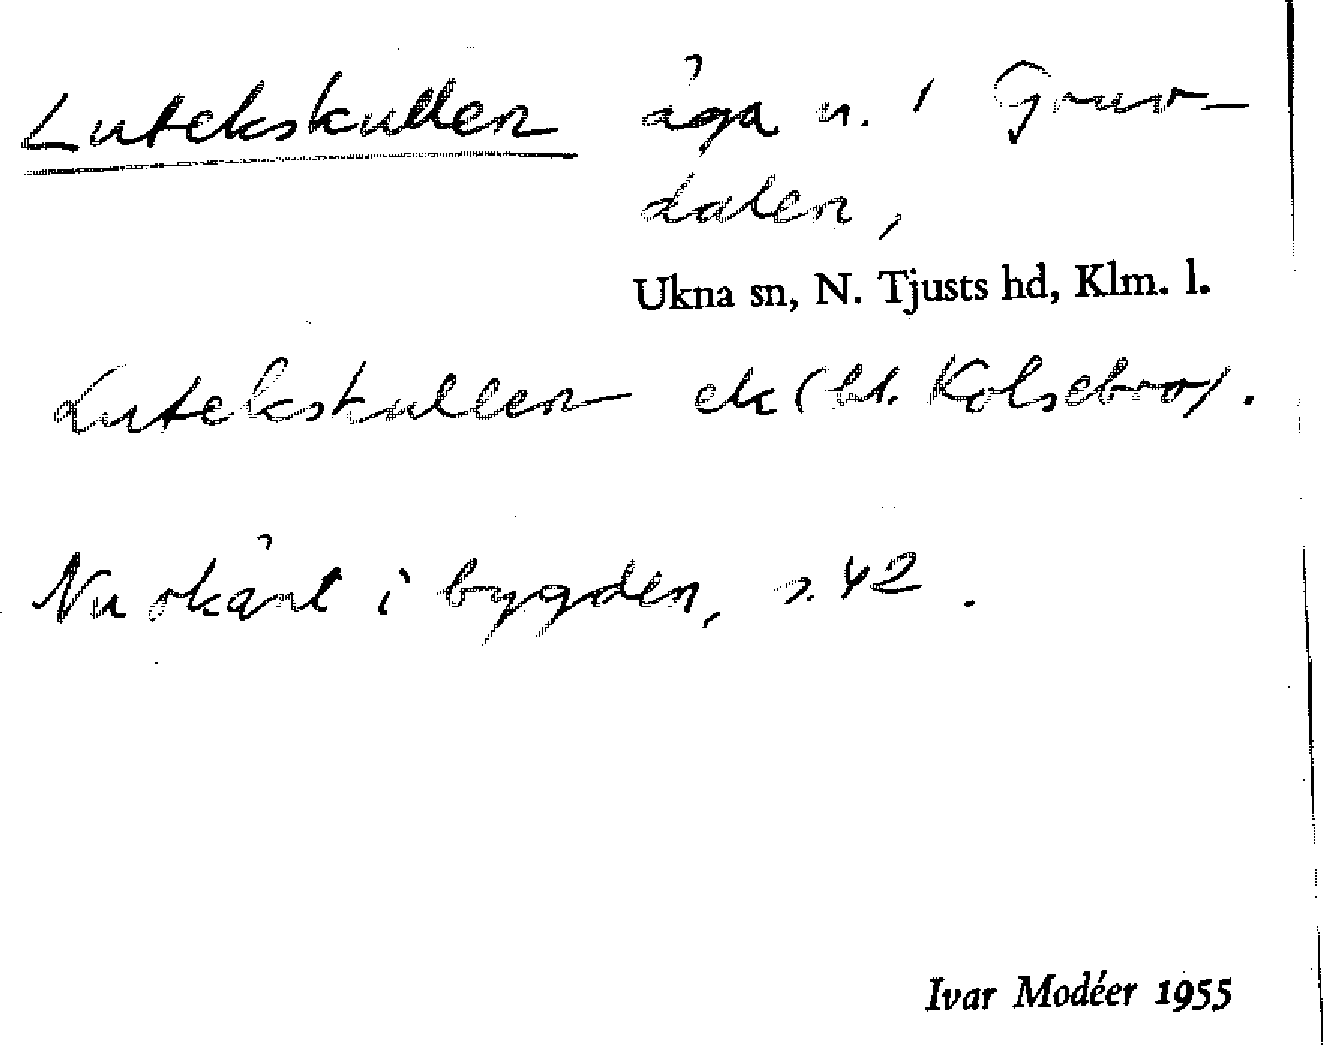 Lutekskullen ågan. i Gruv-
dalen,
Ukna sn, N. Tjusts hd, Klm. l.
Lutekskullen ek (bl. Kolsebro).
Nu okänt i bygden, s. 42.
Ivar Modéer 1955